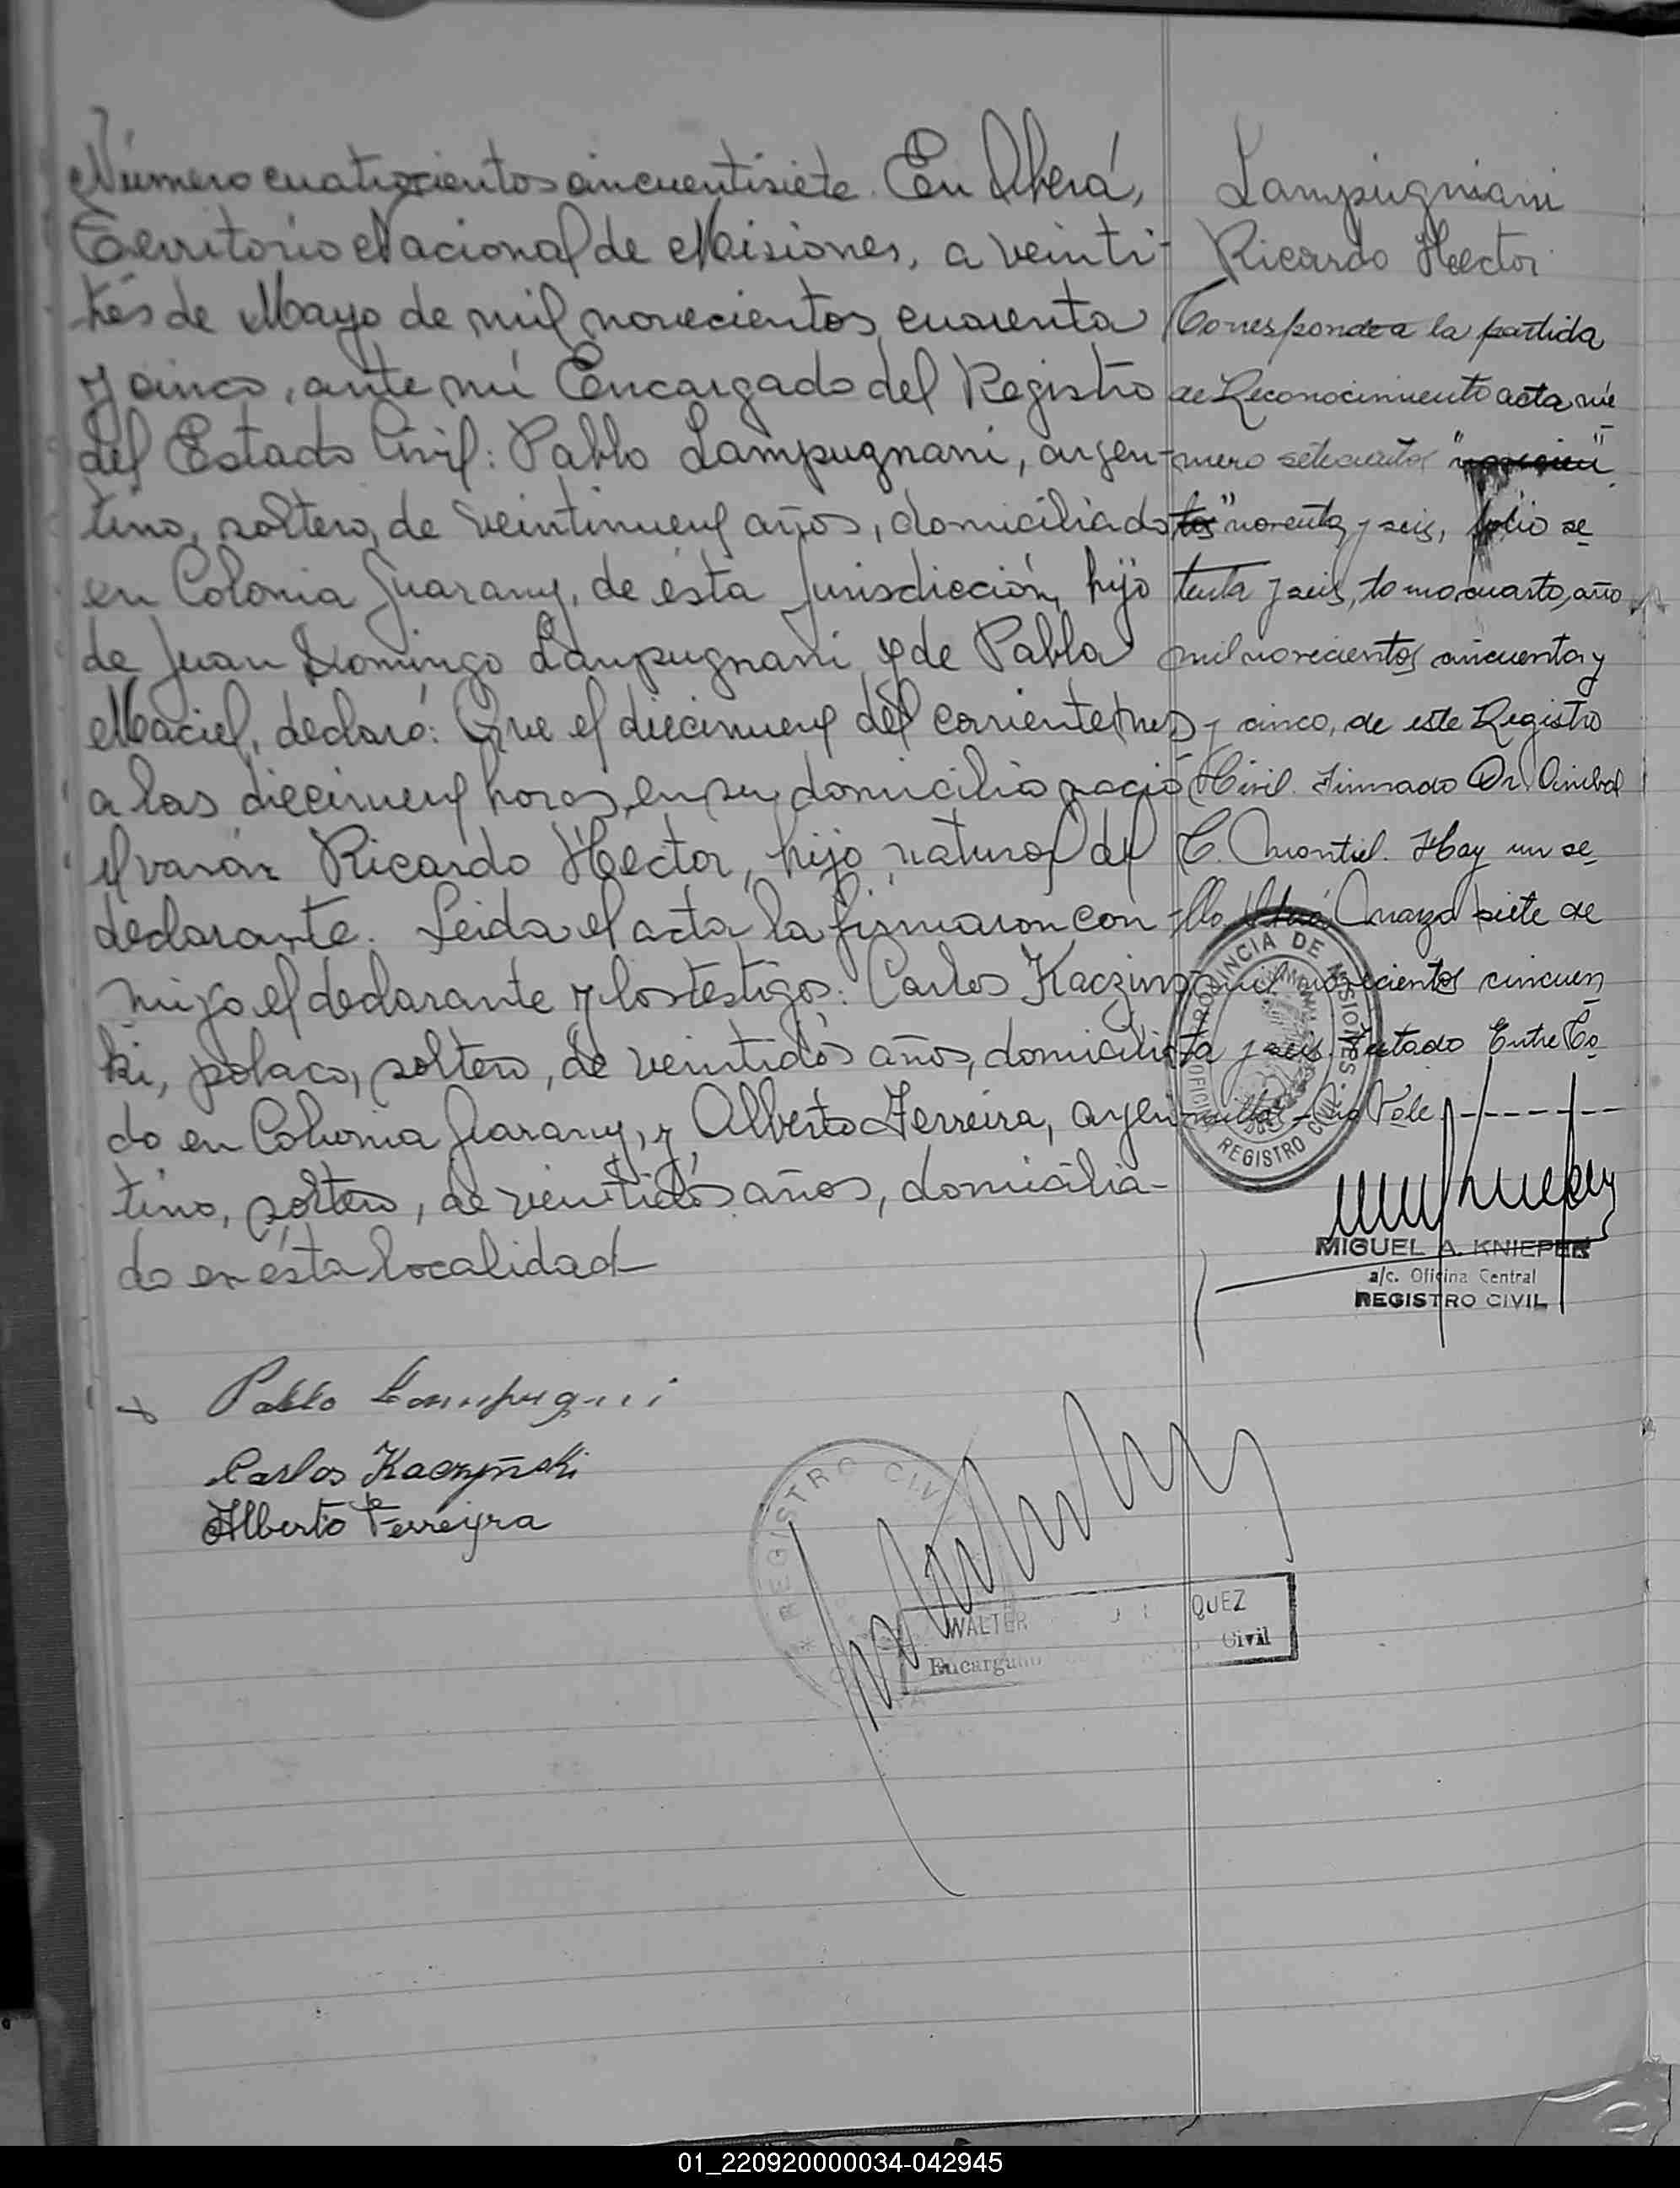 Número cuatrocientos cincuentisiete. En Oberá,
Territorio Nacional de Misiones, a veinti-
trés de Mayo de mil novecientos cuarenta
y cinco, ante mí Encargado del Registro
del Estado Civil: Pablo Lampugnani, argen-
tino, soltero, de veintinueve años, domiciliado
en Colonia Guarany, de ésta Jurisdicción, hijo
de Juan Domingo Lampugnani y de Pabla
Maciel, declaró: Que el diecinueve del corriente mes
a las diecinueve horas, en su domicilio nació
el varón Ricardo Hector, hijo natural del
declarante. Leida el acta la firmaron con-
migo el declarante y los testigos: Carlos Kaczins-
ki, polaco, soltero, de veintidós años, domicilia-
do en Colonia Guarany, y Alberto Ferreira, argen-
tino, soltero, de veintidós años, domicilia-
do en ésta localidad
Lampugniani
Ricardo Hector
Corresponde a la partida
de Reconocimiento acta nú-
mero setecientos "novecien
tos" noventa y seis, folio se-
tenta y seis, tomo cuarto, año
mil novecientos cincuenta y
cinco, de este Registro
Civil. Firmado Dr. Anibal
C. Montiel. Hay un se-
llo. Oberá Marzo siete de
mil novecientos cincuen
ta y seis. Testado Entre Co-
millas No Vale.
PROVINCIA DE MISIONES
REGISTRO CIVIL
MIGUEL A. KNIEPER
a/c. Oficina Central
REGISTRO CIVIL
Pablo Lampugnani
Carlos Kaczyński
Alberto Ferreyra
REGISTRO CIVIL
WALTER QUEZ
Encargado Civil
01_220920000034-042945